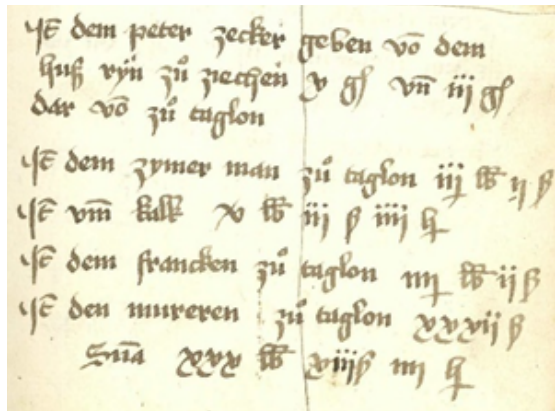 Itē dem peter zecker geben vō dem
huſz ryn zů ziechen v gl vn̄ iij gl
dar vō zů taglon
Itē dem zymer man zů taglon iij lb ij ß
Itē vm̄ kalk x lb iij ß iiij h
Itē dem francken zů taglon iiij lb ij ß
Itē den mureren zů taglon xxxij ß
Sūa xxx lb xiij ß iiij h